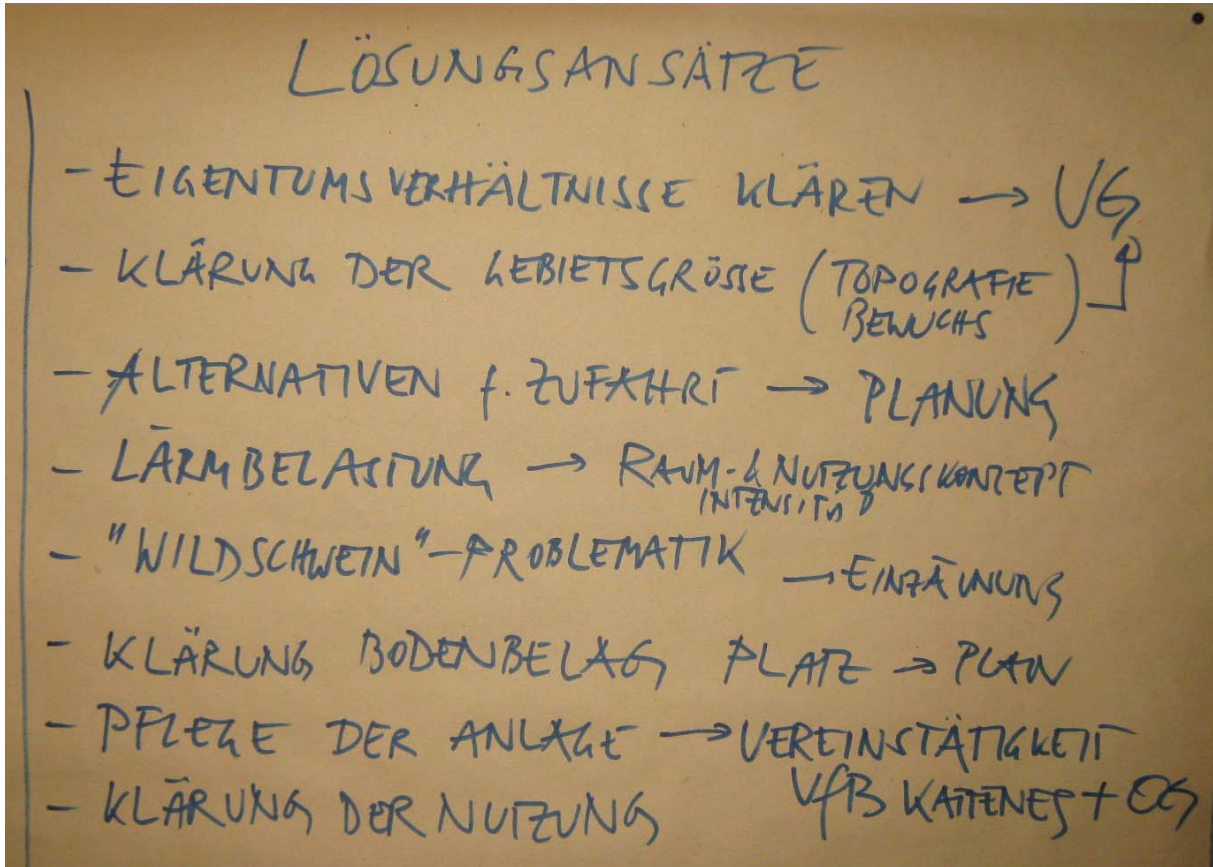 LÖSUNGSANSÄTZE
- EIGENTUMSVERHÄLTNISSE KLÄREN → VG
- KLÄRUNG DER GEBIETSGRÖSSE (TOPOGRAFIE
BEWUCHS)
- ALTERNATIVEN f. ZUFAHRT → PLANUNG
- LÄRMBELASTUNG → RAUM- & NUTZUNGSKONZEPT
INTENSITÄT
- "WILDSCHWEIN"-PROBLEMATIK → EINZÄUNUNG
- KLÄRUNG BODENBELAG PLATZ → PLAN
- PFLEGE DER ANLAGE → VEREINSTÄTIGKEIT
VfB KATTENES + OG
- KLÄRUNG DER NUTZUNG